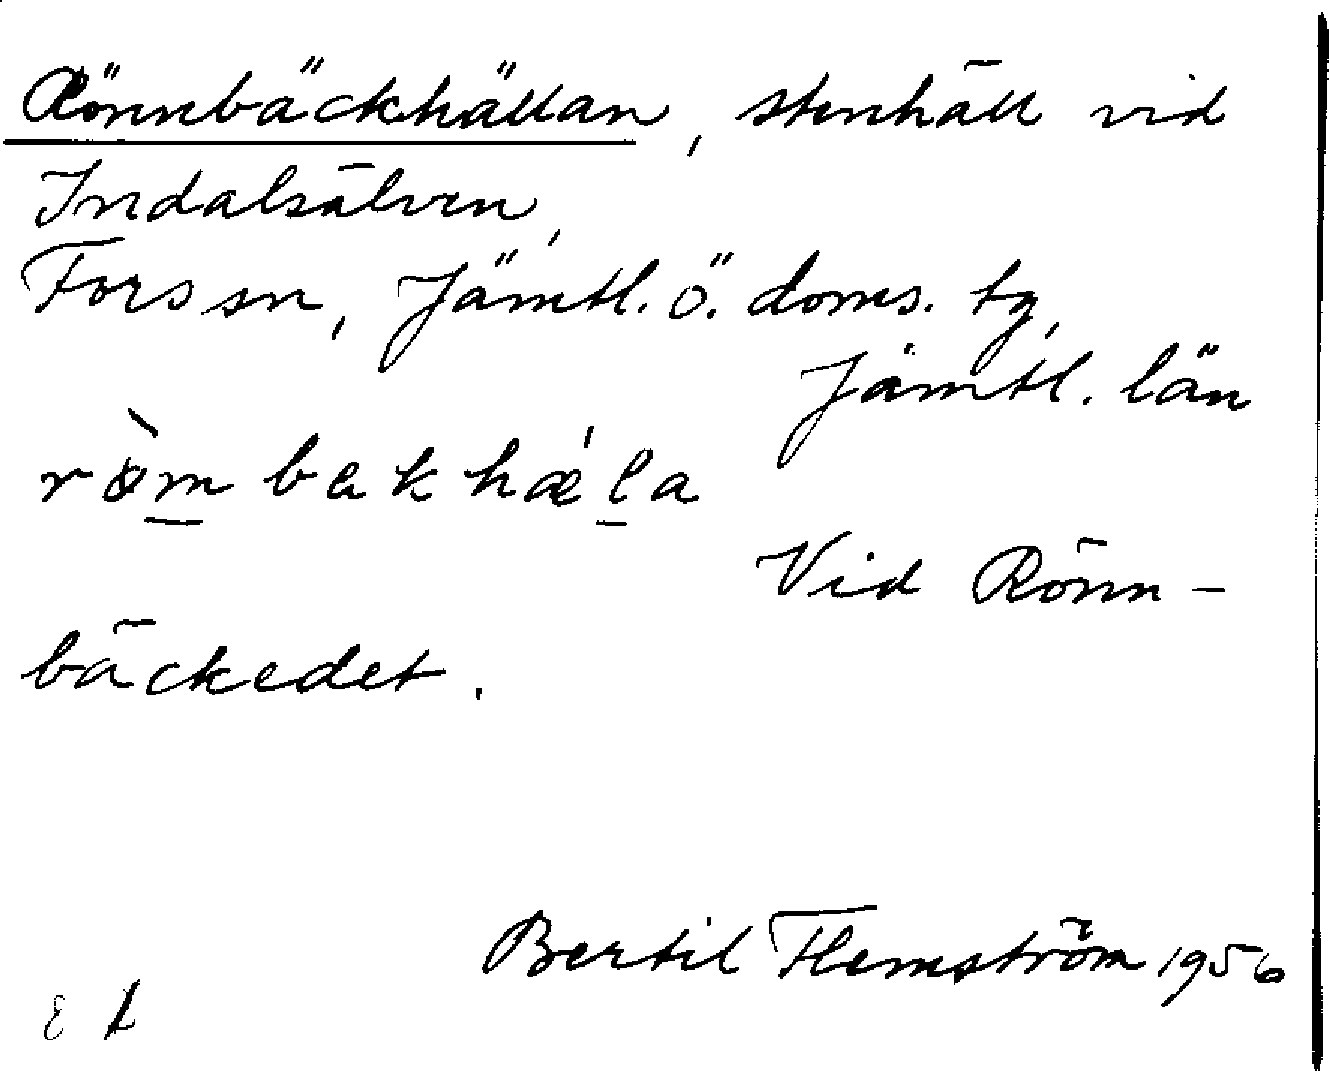 Rönnbäckhällan, stenhäll vid
Indalsälven,
Fors sn, Jämtl. ö. doms. tg,
Jämtl. län
rø̀m̲bakhæ̍l̲a
Vid Rönn-
bäckedet.
Bertil Flemström 1956